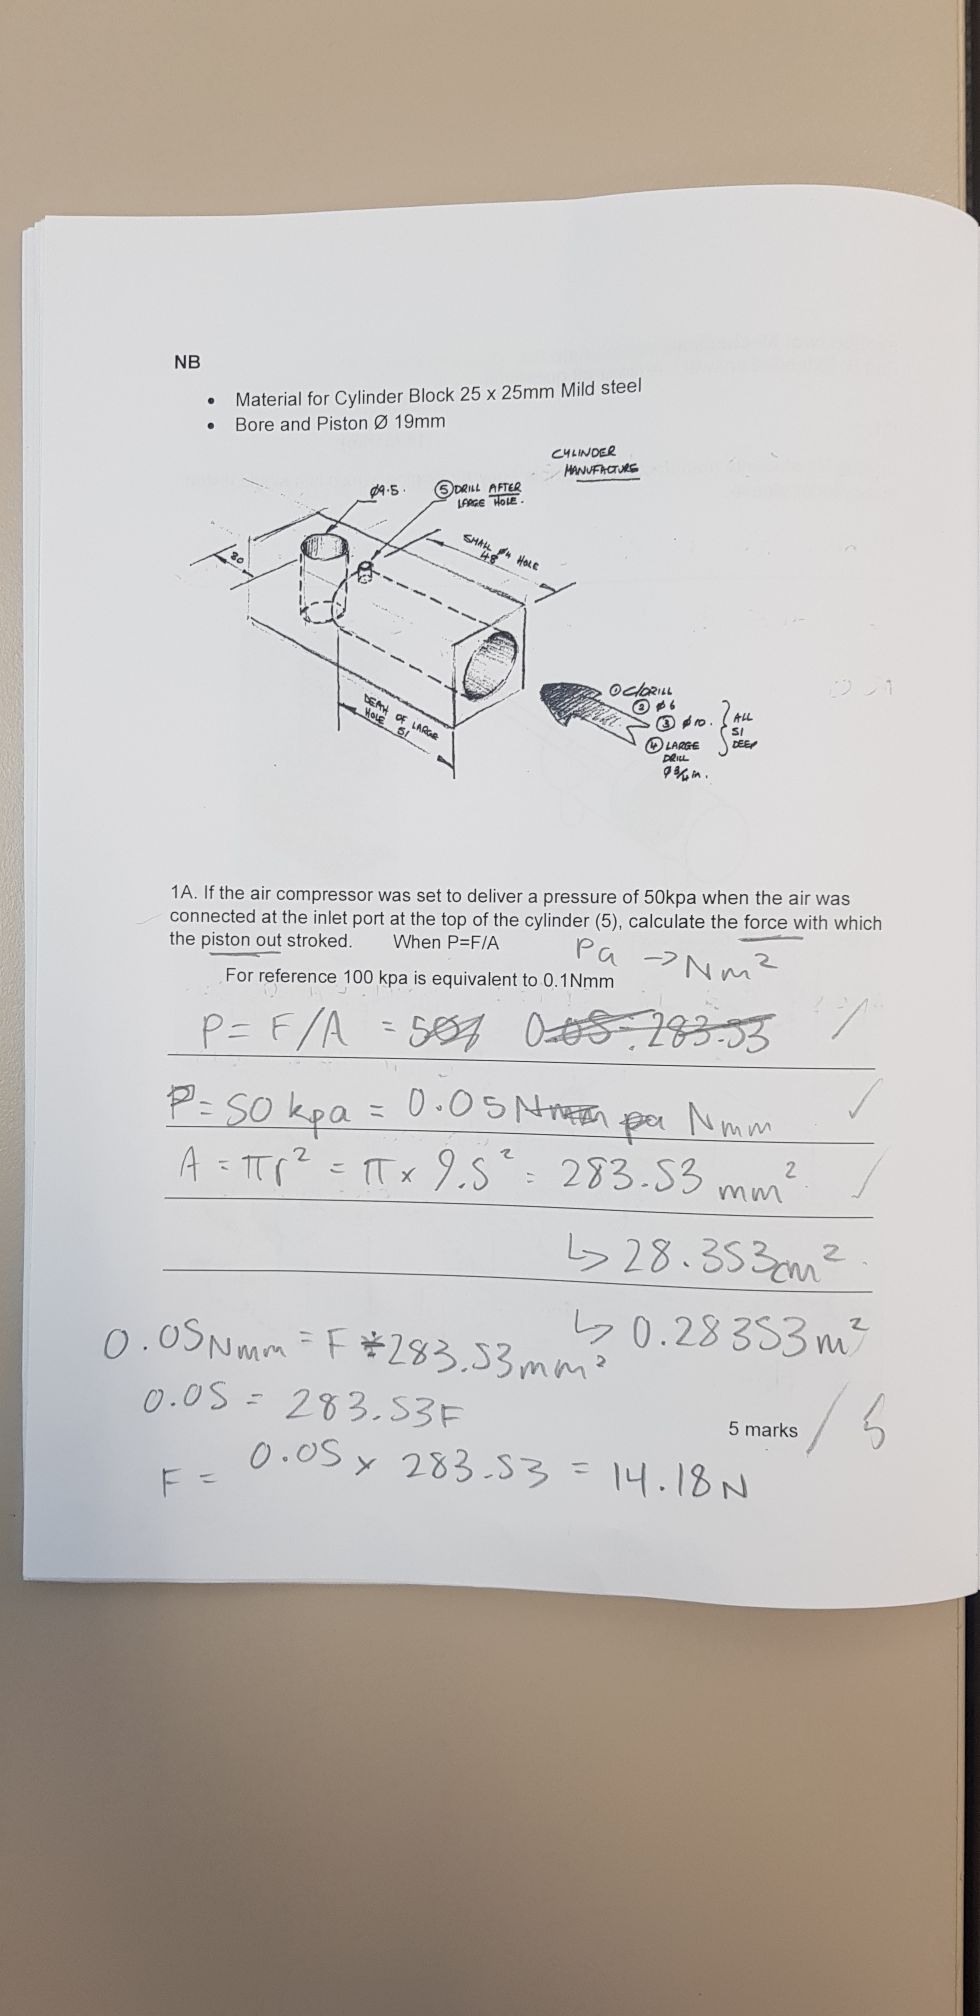 NB
• Material for Cylinder Block 25 x 25mm Mild steel
• Bore and Piston Ø 19mm
CYLINDER
MANUFACTURE
Ø9.5.
⑤ DRILL AFTER
LARGE HOLE.
30
SMALL Ø4 HOLE
48
DEATH OF LARGE
HOLE 51
① C/DRILL
② Ø6
③ Ø10.
④ LARGE
DRILL
Ø 3/4 in.
ALL
51
DEEP
1A. If the air compressor was set to deliver a pressure of 50kpa when the air was
connected at the inlet port at the top of the cylinder (5), calculate the force with which
the piston out stroked. When P=F/A
Pa -> Nm²
For reference 100 kpa is equivalent to 0.1Nmm
P = F/A = 0.05 283.53
P = 50 kpa = 0.05 Nmm pa Nmm
A = πr² = π x 9.5² = 283.53 mm²
↳ 28.353cm²
↳ 0.28353m²
0.05Nmm = F 283.53mm²
0.05 = 283.53F
5 marks / 5
F = 0.05 x 283.53 = 14.18N